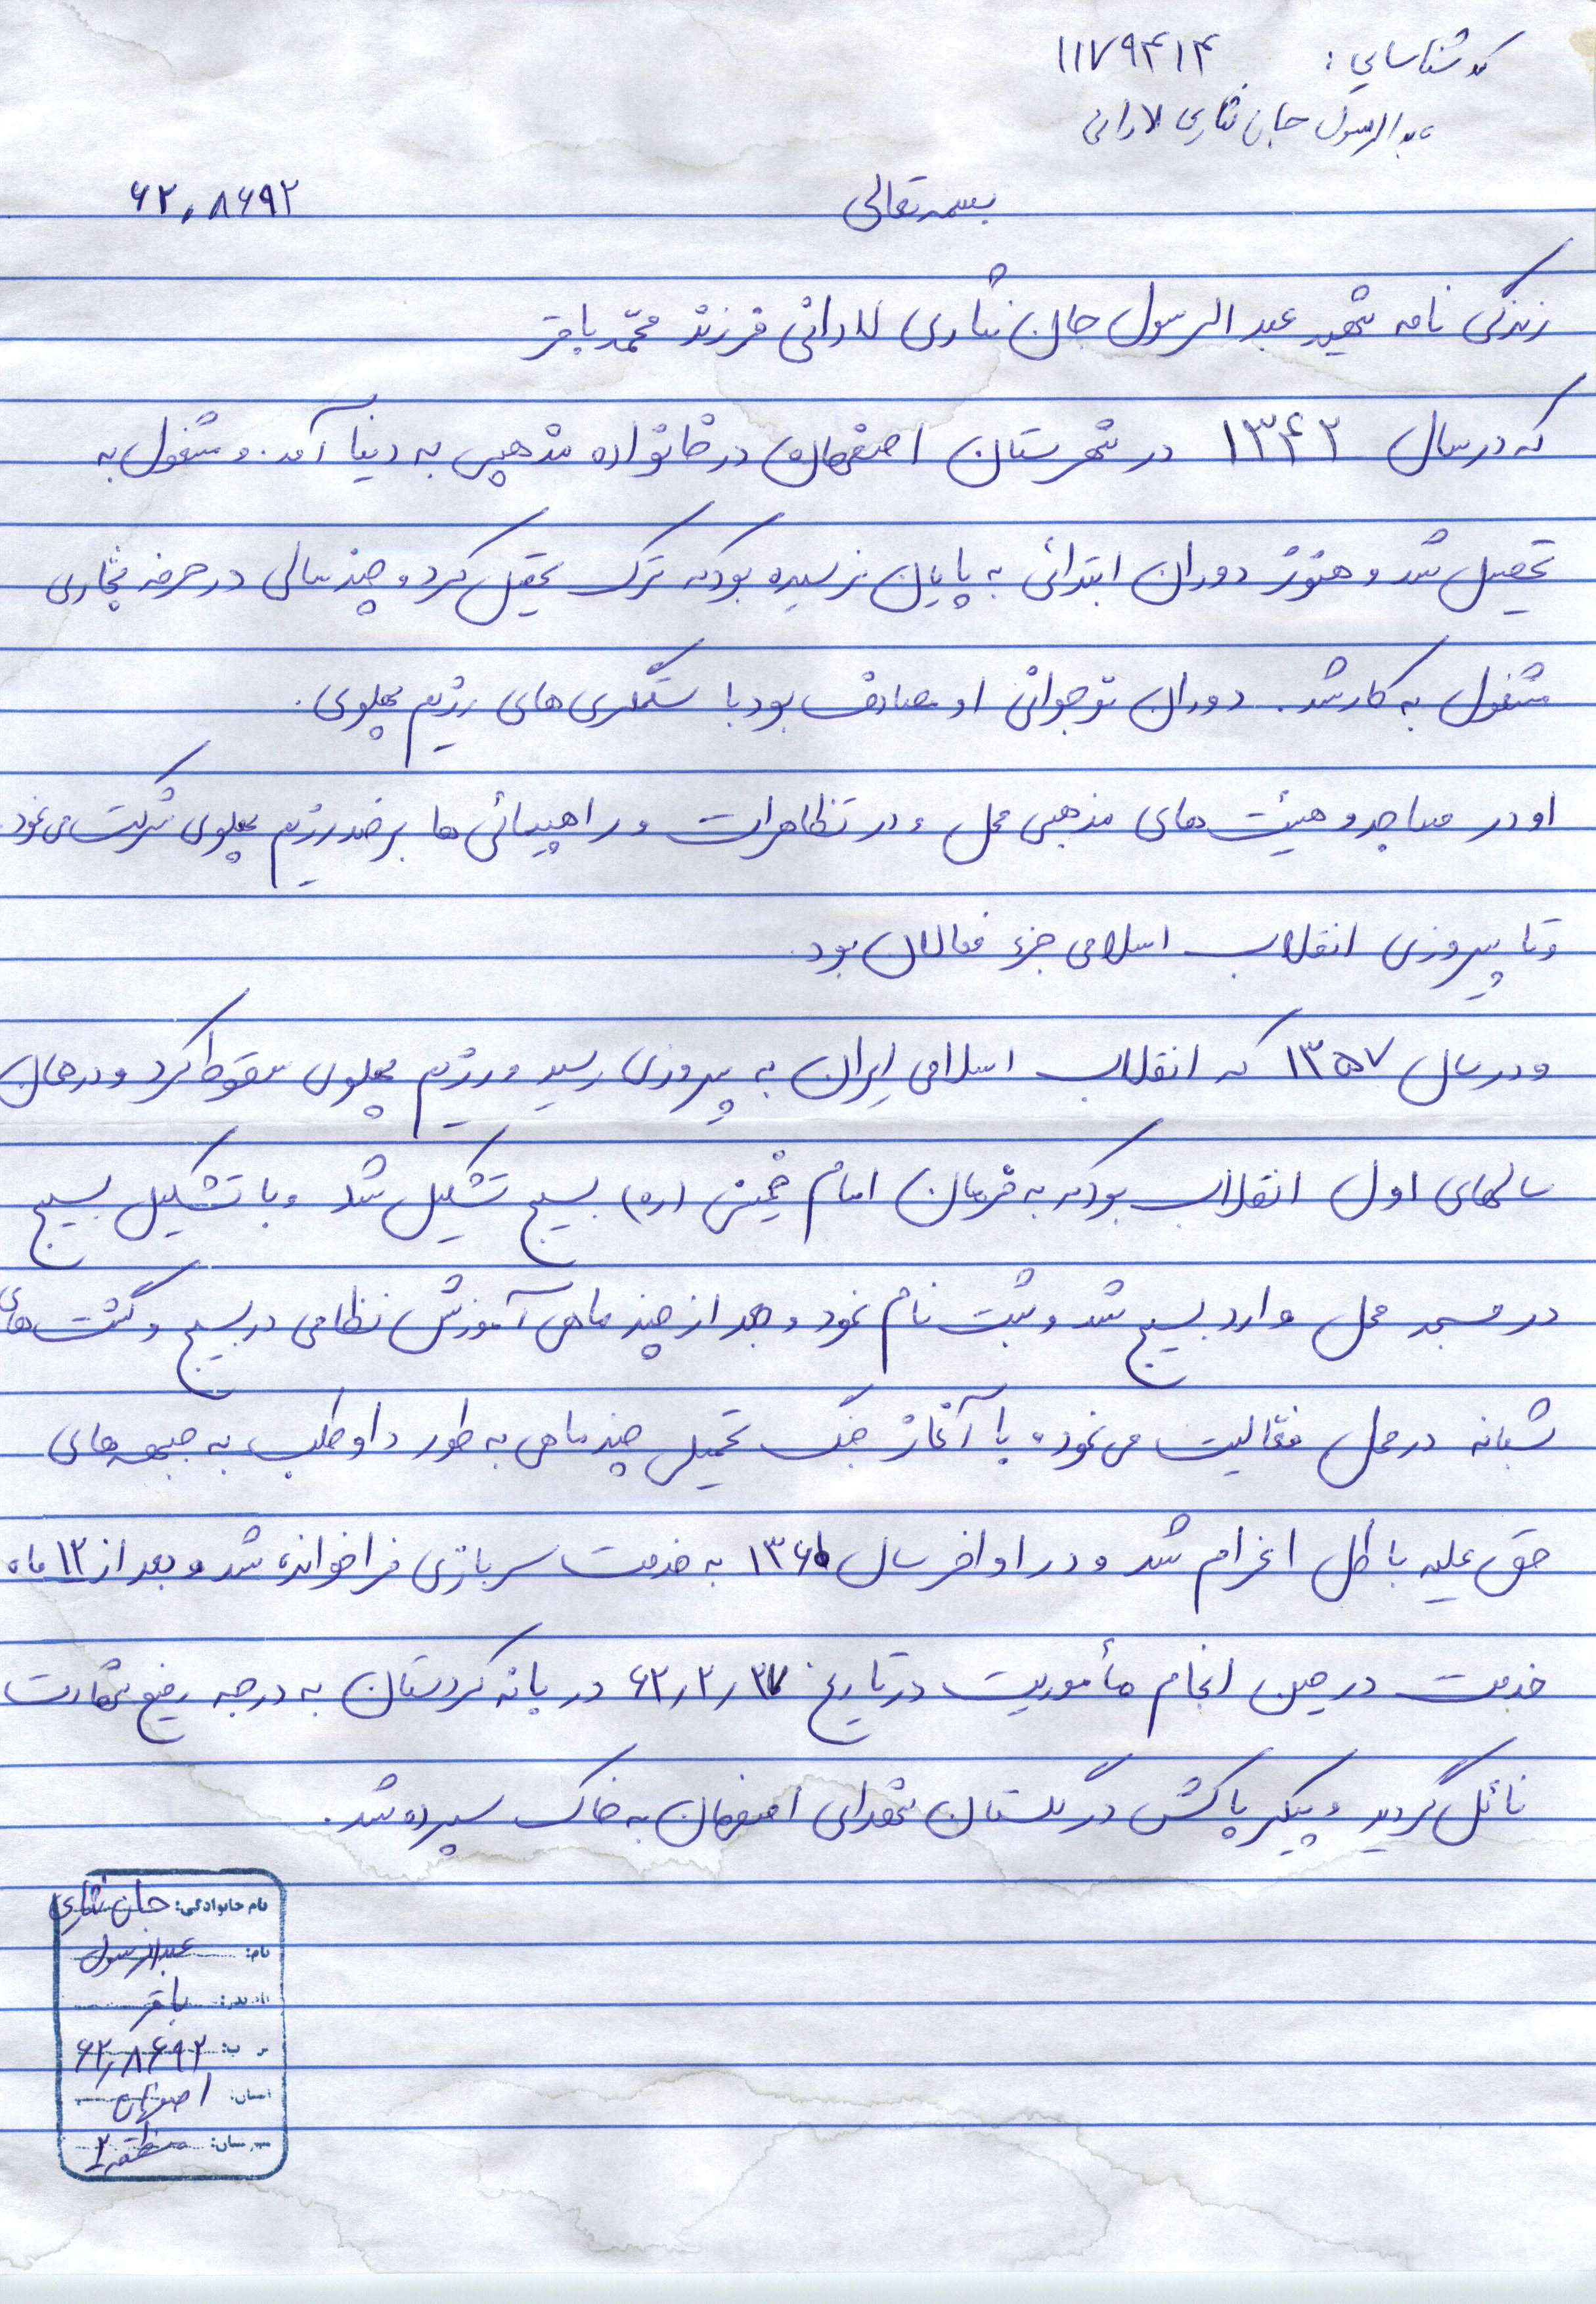 کد شناسایی: ۱۱۷۹۴۱۴
عبدالرسول جان نثاری لادانی
بسمه تعالی
۶۲۰۸۶۹۲
زندگی نامه شهید عبدالرسول جان نثاری لادانی فرزند محمّد باقر
که در سال ۱۳۴۲ در شهرستان اصفهان در خانواده مذهبی به دنیا آمد. و مشغول به
تحصیل شد و هنوز دوران ابتدائی به پایان نرسیده بود که ترک تحصیل کرد و چند سالی در حرفه نجّاری
مشغول به کار شد. دوران نوجوانی او مصادف بود با ستمگری های رژیم پهلوی.
او در مساجد و هیئت های مذهبی محل و در تظاهرات و راهپیمائی ها بر ضد رژیم پهلوی شرکت می نمود.
و تا پیروزی انقلاب اسلامی جزء فعالان بود.
و در سال ۱۳۵۷ که انقلاب اسلامی ایران به پیروزی رسید و رژیم پهلوی سقوط کرد و در همان
سالهای اول انقلاب بود که به فرمان امام خمینی (ره) بسیج تشکیل شد و با تشکیل بسیج
در مسجد محل وارد بسیج شد و ثبت نام نمود و بعد از چند ماهی آموزش نظامی در بسیج و گشت های
شبانه در محل فعّالیت می نمود، با آغاز جنگ تحمیلی چند ماهی به طور داوطلب به جبهه های
حق علیه باطل اعزام شد و در اواخر سال به خدمت سربازی فراخوانده شد و بعد از ۱۳ ماه
خدمت در حین انجام مأموریت در تاریخ در بانه کردستان به درجه رفیع شهادت
نائل گردید و پیکر پاکش در گلستان شهدای اصفهان به خاک سپرده شد.
نام خانوادگی: جان نثاری
نام: عبدالرسول
نام پدر: باقر
۶۲۰۸۶۹۲
استان: اصفهان
منطقه ۲